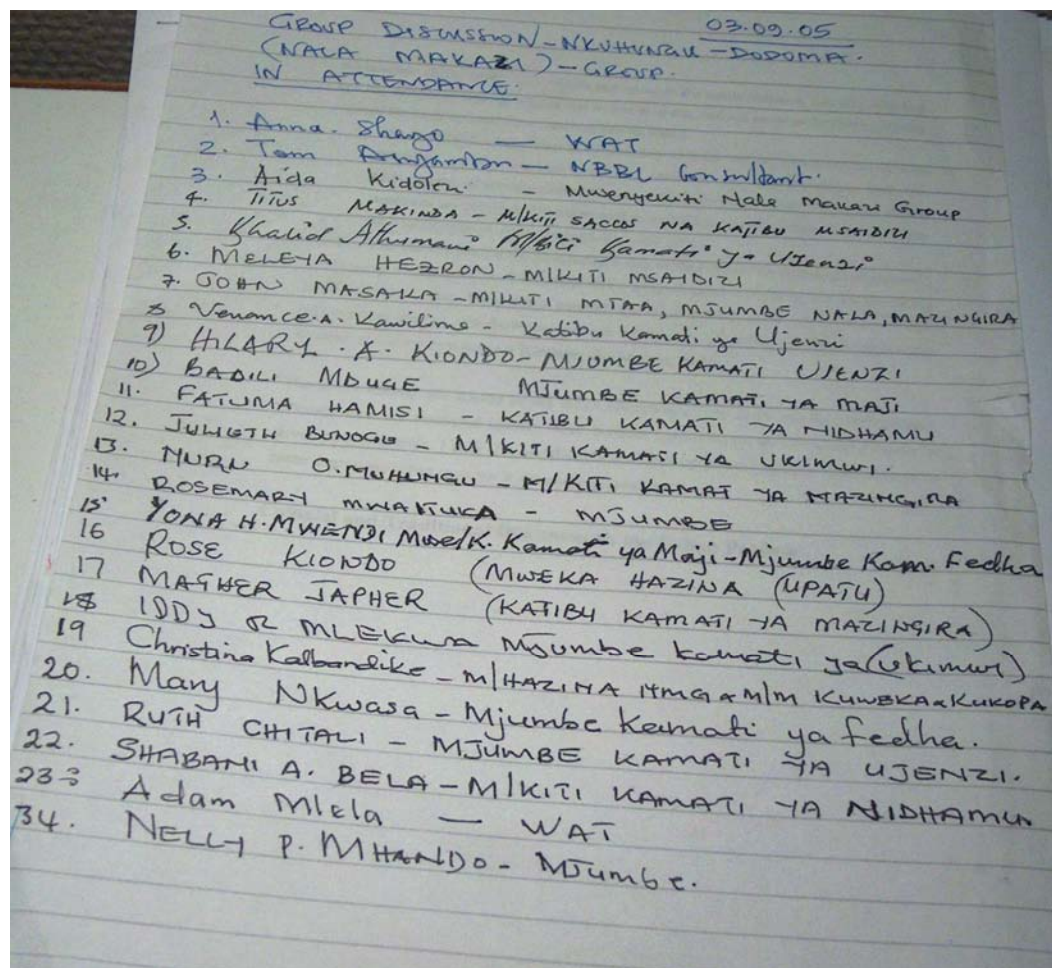 03.09.05
GROUP DISCUSSION - NKUHUNGU - DODOMA.
(NALA MAKAZI) - GROUP.
IN ATTENDANCE:
1. Anna. Shayo — WAT
2. Tom — NBBL Consultant.
3. Aida Kidolezi - Mwenyekiti Nala Makazi Group
4. TITUS MAKINDA - M/KITI SACCOS NA KATIBU MSAIDIZI
5. Khalid Athumani M/kiti Kamati ya Ujenzi
6. MELEYA HEZRON - M/KITI MSAIDIZI
7. JOHN MASAKA - M/KITI MTAA, MJUMBE NALA, MAZINGIRA
8 Venance. A. Kawilimo - Katibu Kamati ya Ujenzi
9) HILARY . A. KIONDO - MJUMBE KAMATI UJENZI
10) BADILI MDUGE MJUMBE KAMATI YA MAJI
11. FATUMA HAMISI - KATIBU KAMATI YA NIDHAMU
12. JULIETH - M/KITI KAMATI YA UKIMWI.
13. NURU O. MUHUNGU - M/KITI KAMAT YA MAZINGIRA
14. ROSEMARY MWAKTUKA - MJUMBE
15. YONA H. MWENDI Mwe/K. Kamati ya Maji - Mjumbe Kam. Fedha
16 ROSE KIONDO (MWEKA HAZINA (UPATU)
17 MAGHER JAPHER (KATIBU KAMATI YA MAZINGIRA)
18 IDDY R MLEKWA Mjumbe kamati ya (Ukimwi)
19 Christina Kalbandike - M/HAZINA M/M KUWEKA & KUKOPA
20. Mary Nkwasa - Mjumbe Kamati ya fedha.
21. RUTH CHITALI - MJUMBE KAMATI YA UJENZI.
22. SHABANI A. BELA - M/KITI KAMATI YA NIDHAMU.
23 Adam Mlela — WAT
34. NELLY P. MHANDO - Mjumbe.